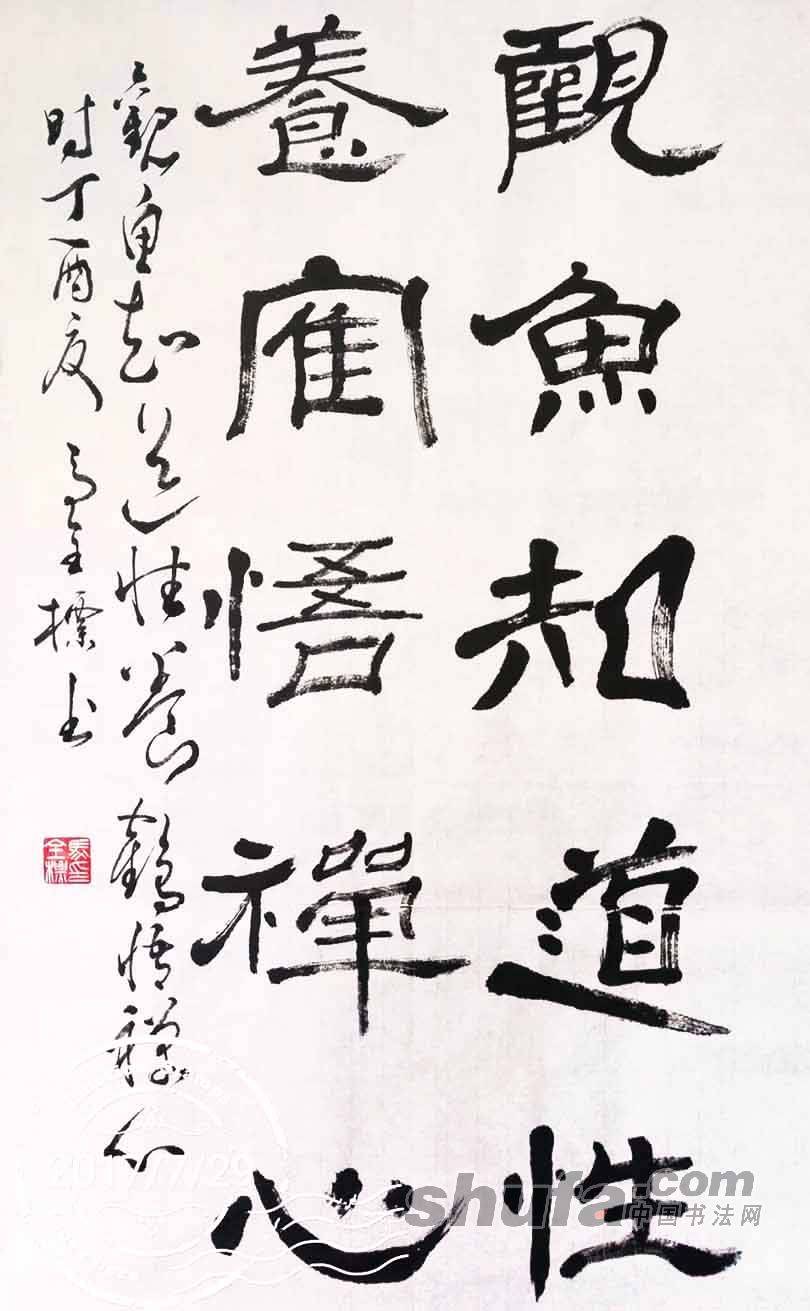 觀魚知道性
養隺悟禪心
觀鱼知道性養鶴悟禪心
时丁酉夏 马全標书
2017/7/29
shufa.com
中国书法网